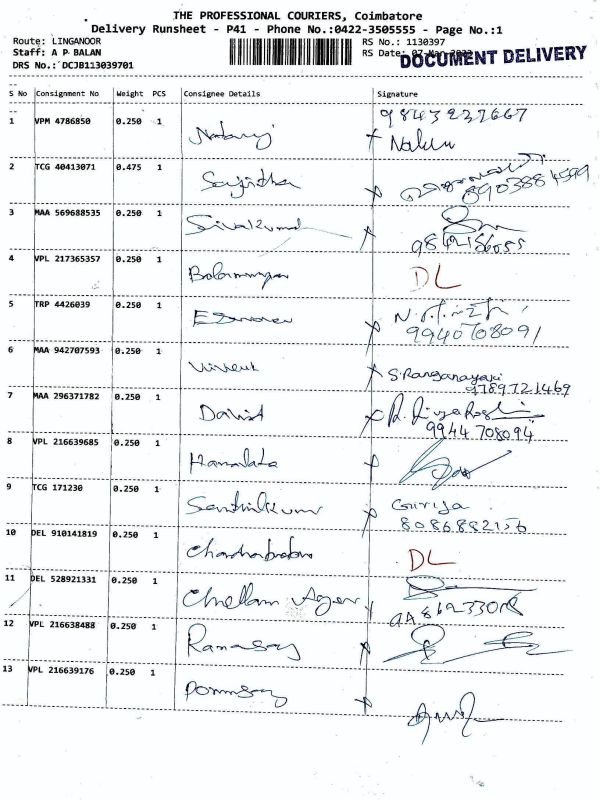 THE PROFESSIONAL COURIERS, Coimbatore
Delivery Runsheet - P41 - Phone No.:0422-3505555 - Page No.:1
Route: LINGANOOR
RS No.: 1130397
Staff: A P BALAN
RS Date: 07-Mar-2022
DOCUMENT DELIVERY
DRS No.: DCJB113039701
S No Consignment No Weight PCS Consignee Details Signature
1 VPM 4786850 0.250 1 Nataraj 9843237667
2 TCG 40413071 0.475 1 Sajitha 8903884599
3 MAA 569688535 0.250 1 Sivakumar
4 VPL 217365357 0.250 1 Balamurugan DL
5 TRP 4426039 0.250 1 9940708091
6 MAA 942707593 0.250 1 Vivek S.Ranganayaki
9789721469
7 MAA 296371782 0.250 1 David
9944 708094
8 VPL 216639685 0.250 1 Hamalata
9 TCG 171230 0.250 1 Senthilkumar Girija
8086882156
10 DEL 910141819 0.250 1 Chandraprabu DL
11 DEL 528921331 0.250 1 Chellam
12 VPL 216638488 0.250 1 Ramasay
13 VPL 216639176 0.250 1 Ponnusay